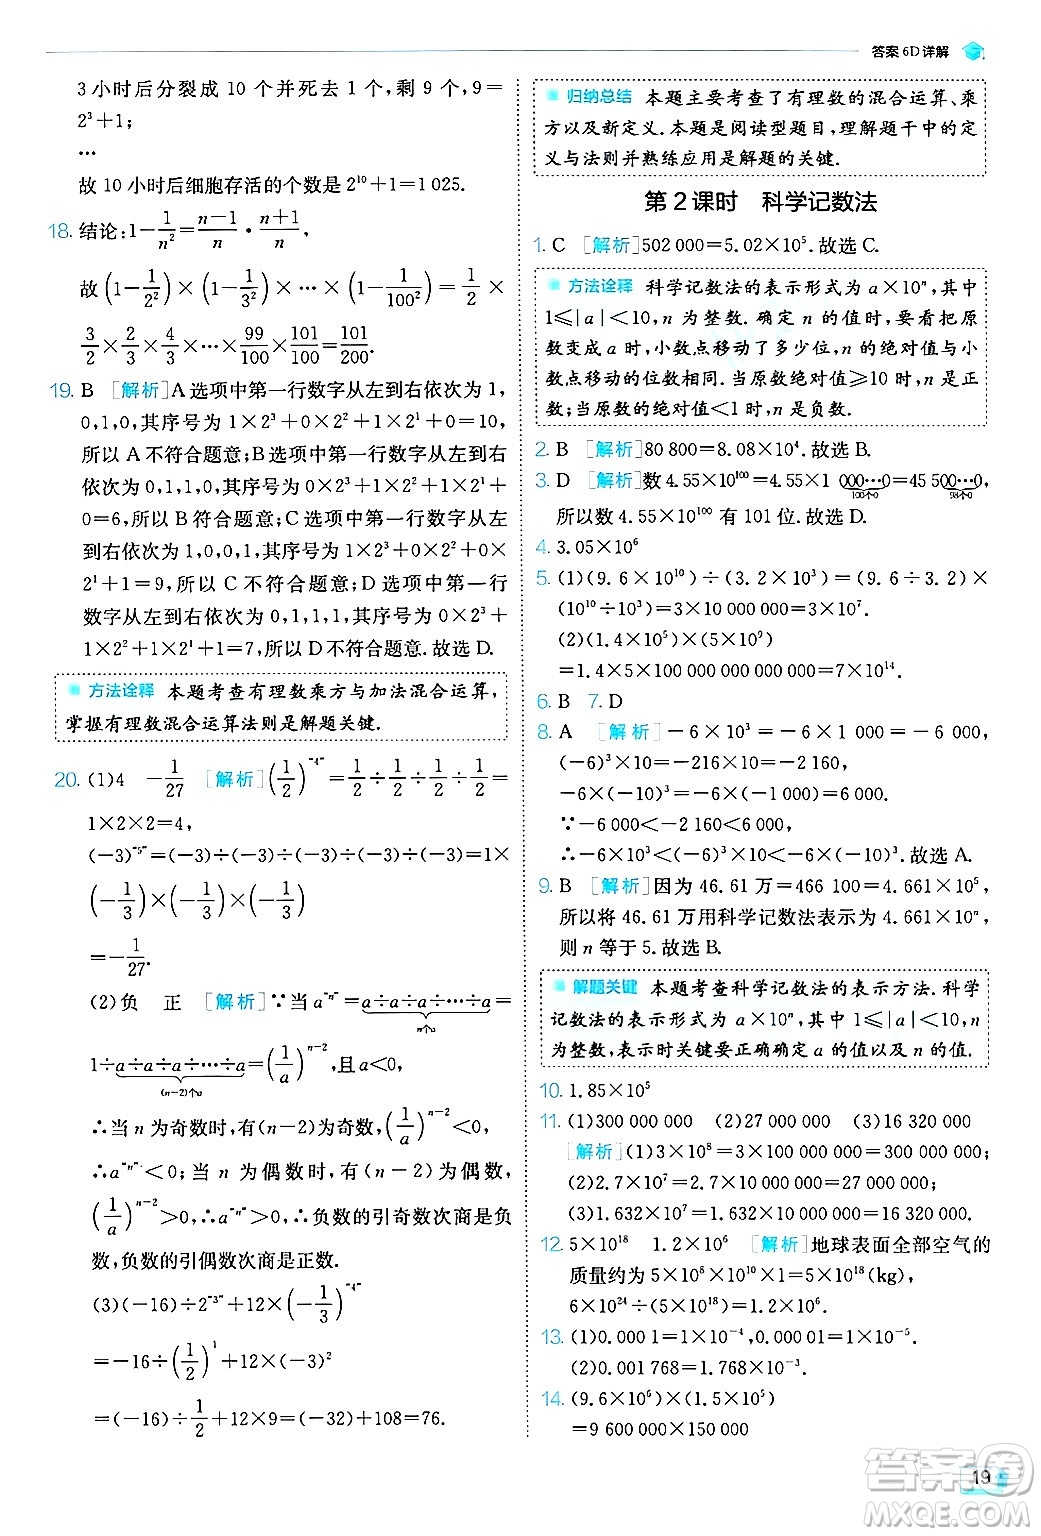 答案 6D 详解
3 小时后分裂成 10 个并死去 1 个,剩 9 个,9=
2³+1;
…
故 10 小时后细胞存活的个数是 2¹⁰+1=1 025.
18. 结论:1−1/n²=(n−1)/n·(n+1)/n,
故(1−1/2²)×(1−1/3²)×…×(1−1/100²)=1/2×
3/2×2/3×4/3×…×99/100×101/100=101/200.
19. B [解析]A 选项中第一行数字从左到右依次为 1,
0,1,0,其序号为 1×2³+0×2²+1×2¹+0=10,
所以 A 不符合题意;B 选项中第一行数字从左到右
依次为 0,1,1,0,其序号为 0×2³+1×2²+1×2¹+
0=6,所以 B 符合题意;C 选项中第一行数字从左
到右依次为 1,0,0,1,其序号为 1×2³+0×2²+0×
2¹+1=9,所以 C 不符合题意;D 选项中第一行
数字从左到右依次为 0,1,1,1,其序号为 0×2³+
1×2²+1×2¹+1=7,所以 D 不符合题意.故选 D.
方法诠释 本题考查有理数乘方与加法混合运算,
掌握有理数混合运算法则是解题关键.
20. (1)4 −1/27 [解析](1/2)^"4"=1/2÷1/2÷1/2÷1/2=
1×2×2=4,
(−3)^"5"=(−3)÷(−3)÷(−3)÷(−3)÷(−3)=1×
(−1/3)×(−1/3)×(−1/3)
=−1/27.
(2)负 正 [解析]∵当 a^"n"=a÷a÷a÷…÷a=
n个a
1÷a÷a÷a÷…÷a=(1/a)ⁿ⁻²,且 a<0,
(n−2)个a
∴当 n 为奇数时,有(n−2)为奇数,(1/a)ⁿ⁻²<0,
∴a^"n"<0;当 n 为偶数时,有(n−2)为偶数,
(1/a)ⁿ⁻²>0,∴a^"n">0,∴负数的引奇数次商是负
数,负数的引偶数次商是正数.
(3)(−16)÷2^"3"+12×(−1/3)^"4"
=−16÷(1/2)¹+12×(−3)²
=(−16)÷1/2+12×9=−32+108=76.
归纳总结 本题主要考查了有理数的混合运算、乘
方以及新定义.本题是阅读型题目,理解题干中的定
义与法则并熟练应用是解题的关键.
第 2 课时 科学记数法
1. C [解析]502 000=5.02×10⁵.故选 C.
方法诠释 科学记数法的表示形式为 a×10ⁿ,其中
1≤|a|<10,n 为整数.确定 n 的值时,要看把原
数变成 a 时,小数点移动了多少位,n 的绝对值与小
数点移动的位数相同.当原数的绝对值≥10 时,n 是正
数;当原数的绝对值<1 时,n 是负数.
2. B [解析]80 800=8.08×10⁴.故选 A.
3. D [解析]数 4.55×10¹⁰⁰=4.55×1 000…0=45 500…0,
100个0 98个0
所以数 4.55×10¹⁰⁰ 有 101 位.故选 D.
4. 3.05×10⁶
5. (1)(9.6×10¹⁰)÷(3.2×10³)=(9.6÷3.2)×
(10¹⁰÷10³)=3×10 000 000=3×10⁷.
(2)(2.8×10⁵)×(5×10⁹)
=1.4×5×100 000 000 000 000=7×10¹⁴.
6. B 7. D
8. A [解析]−6×10³=−6×1 000=−6 000,
(−6)³×10=−216×10=−2 160,
−6×(−10)³=−6×(−1 000)=6 000.
∵−6 000<−2 160<6 000,
∴−6×10³<(−6)³×10<−6×(−10)³.故选 A.
9. B [解析]因为 46.61 万=466 100=4.661×10⁵,
所以将 46.61 万用科学记数法表示为 4.661×10ⁿ,
则 n 等于 5.故选 B.
解题关键 本题考查科学记数法的表示方法.科学
记数法的表示形式为 a×10ⁿ,其中 1≤|a|<10,n
为整数,表示时关键要正确确定 a 的值以及 n 的值.
10. 1.85×10⁵
11. (1)300 000 000 (2)27 000 000 (3)16 320 000
[解析](1)3×10⁸=3×100 000 000=300 000 000;
(2)2.7×10⁷=2.7×10 000 000=27 000 000;
(3)1.632×10⁷=1.632×10 000 000=16 320 000.
12. 5×10¹⁸ 1.2×10⁶ [解析]地球表面全部空气的
质量约为 5×10⁸×1×10¹⁰=5×10¹⁸(kg),
6×10²⁴÷(5×10¹⁸)=1.2×10⁶.
13. (1)0.000 1=1×10⁻⁴,0.000 01=1×10⁻⁵.
(2)0.001 768=1.768×10⁻³.
14. (9.6×10⁶)×(1.5×10⁵)
=9 600 000×150 000
19
答案圈
MXQE.COM